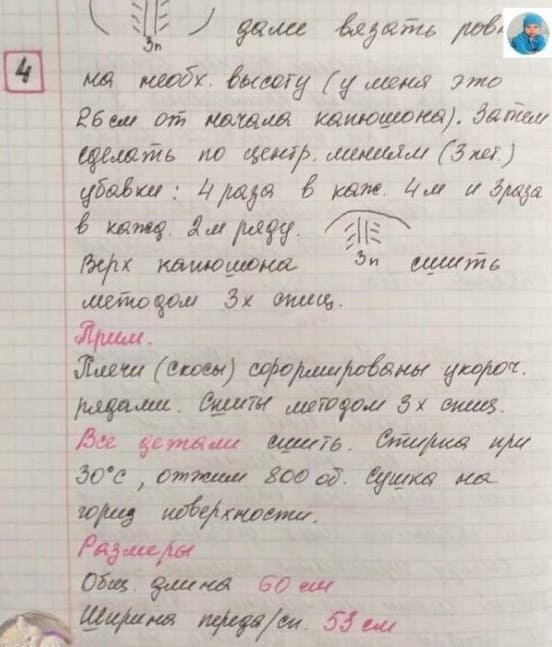 3п
далее вязать ров
4
на необх. высоту (у меня это
26 см от начала капюшона). Затем
сделать по центр. линиям (3 пет.)
убавки: 4 раза в каж. 4м и 3 раза
в кажд. 2м ряду.
3п
Верх капюшона сшить
методом 3х спиц.
Прим.
Плечи (скосы) сформированы укороч.
рядами. Сшиты методом 3х спиц.
Все детали сшить. Стирка при
30°С, отжим 800 об. Сушка на
гориз поверхности.
Размеры
Общ. длина 60 см
Ширина переда/сп. 53 см